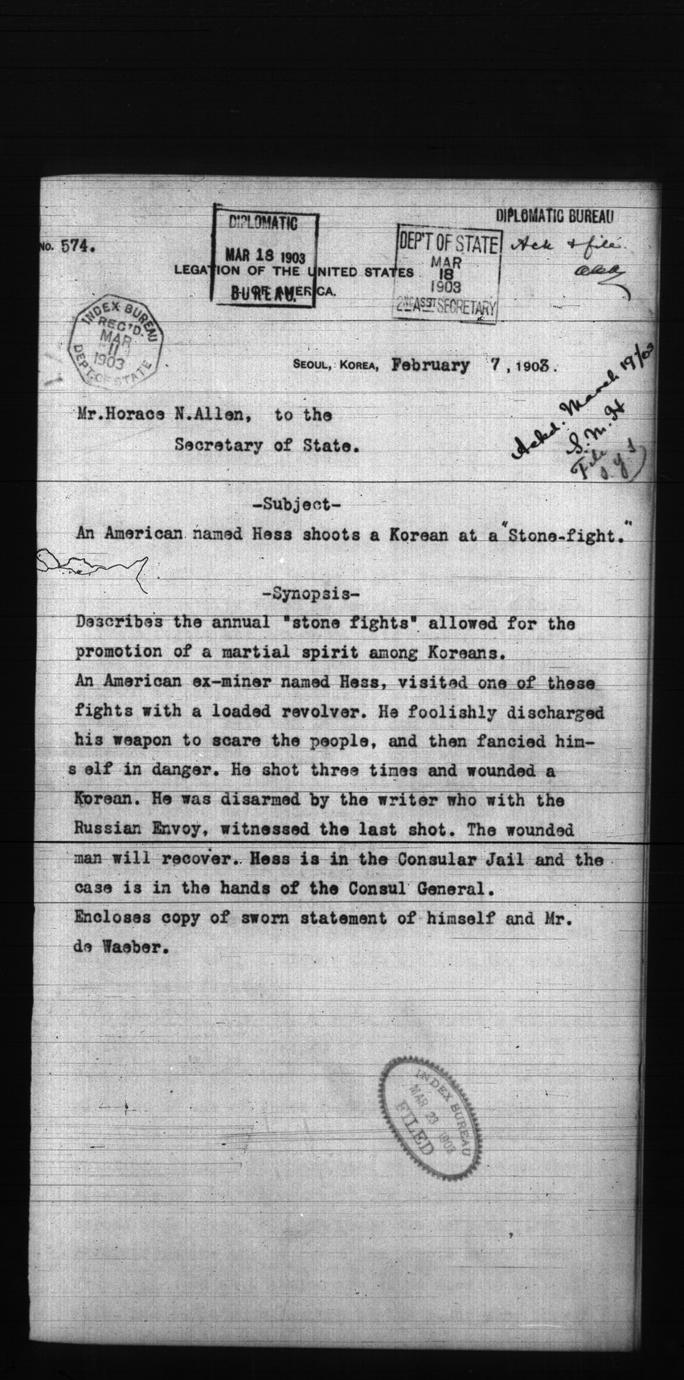 DIPLOMATIC
MAR 18 1903
BUREAU.
DIPLOMATIC BUREAU
DEP'T OF STATE
MAR
18
1903
2ND ASST SECRETARY
Ack & file
No. 574.
LEGATION OF THE UNITED STATES
OF AMERICA.
INDEX BUREAU
REC'D.
MAR
11
1903
DEPT. OF STATE
SEOUL, KOREA, February 7, 1903.
Ackd. March 19/03
S.M.H
File
Mr.Horace N.Allen, to the
Secretary of State.
-Subject-
An American named Hess shoots a Korean at a "Stone-fight."
-Synopsis-
Describes the annual "stone fights" allowed for the
promotion of a martial spirit among Koreans.
An American ex-miner named Hess, visited one of these
fights with a loaded revolver. He foolishly discharged
his weapon to scare the people, and then fancied him-
s elf in danger. He shot three times and wounded a
Korean. He was disarmed by the writer who with the
Russian Envoy, witnessed the last shot. The wounded
man will recover. Hess is in the Consular Jail and the
case is in the hands of the Consul General.
Encloses copy of sworn statement of himself and Mr.
de Waeber.
INDEX BUREAU
MAR 23 1903
FILED